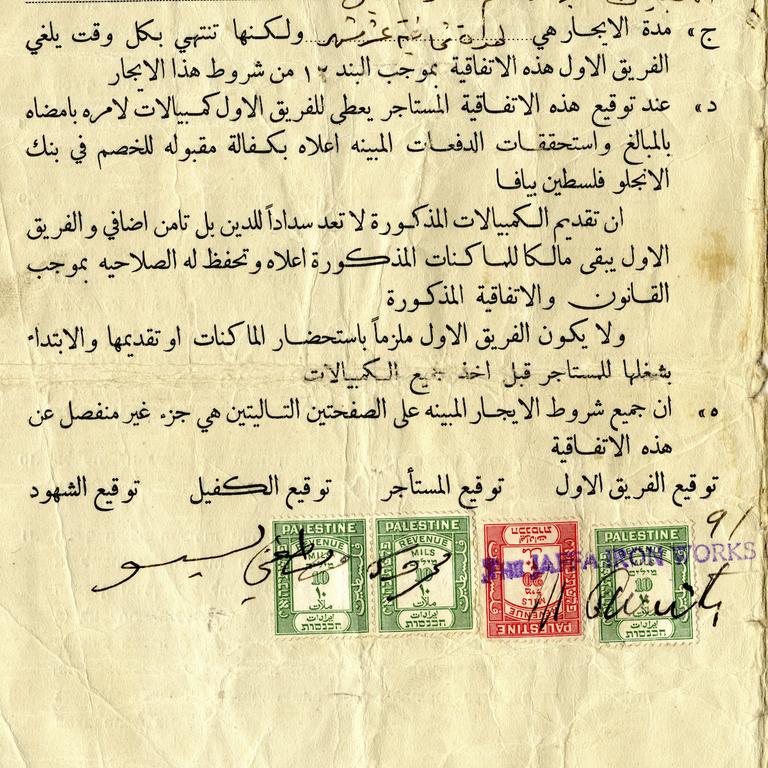 ج» مدة الايجار هي ولكنها تنتهي بكل وقت يلغي
الفريق الاول هذه الاتفاقية بموجب البند ١٢ من شروط هذا الايجار
د» عند توقيع هذه الاتفاقية المستاجر يعطي للفريق الاول كمبيالات لامره بامضاه
بالمبالغ واستحقاقات الدفعات المبينه اعلاه بكفالة مقبوله للخصم في بنك
الانجلو فلسطين بيافا
ان تقديم الكمبيالات المذكورة لا تعد سداداً للدين بل تامن اضافي والفريق
الاول يبقى مالكا للماكنات المذكورة اعلاه وتحفظ له الصلاحيه بموجب
القانون والاتفاقية المذكورة
ولا يكون الفريق الاول ملزماً باستحضار الماكنات او تقديمها والابتداء
بشغلها للمستاجر قبل اخذ جميع الكمبيالات
ه» ان جميع شروط الايجار المبينه على الصفحتين التاليتين هي جزء غير منفصل عن
هذه الاتفاقية
توقيع الفريق الاول توقيع المستأجر توقيع الكفيل توقيع الشهود
PALESTINE PALESTINE PALESTINE PALESTINE
REVENUE REVENUE REVENUE
MILS MILS MILS
10 מילים 10 מילים 10 מילים
١٠ ملات ١٠ ملات
ايرادات ايرادات ايرادات
הכנסות הכנסות הכנסות
JAFFA IRON WORKS